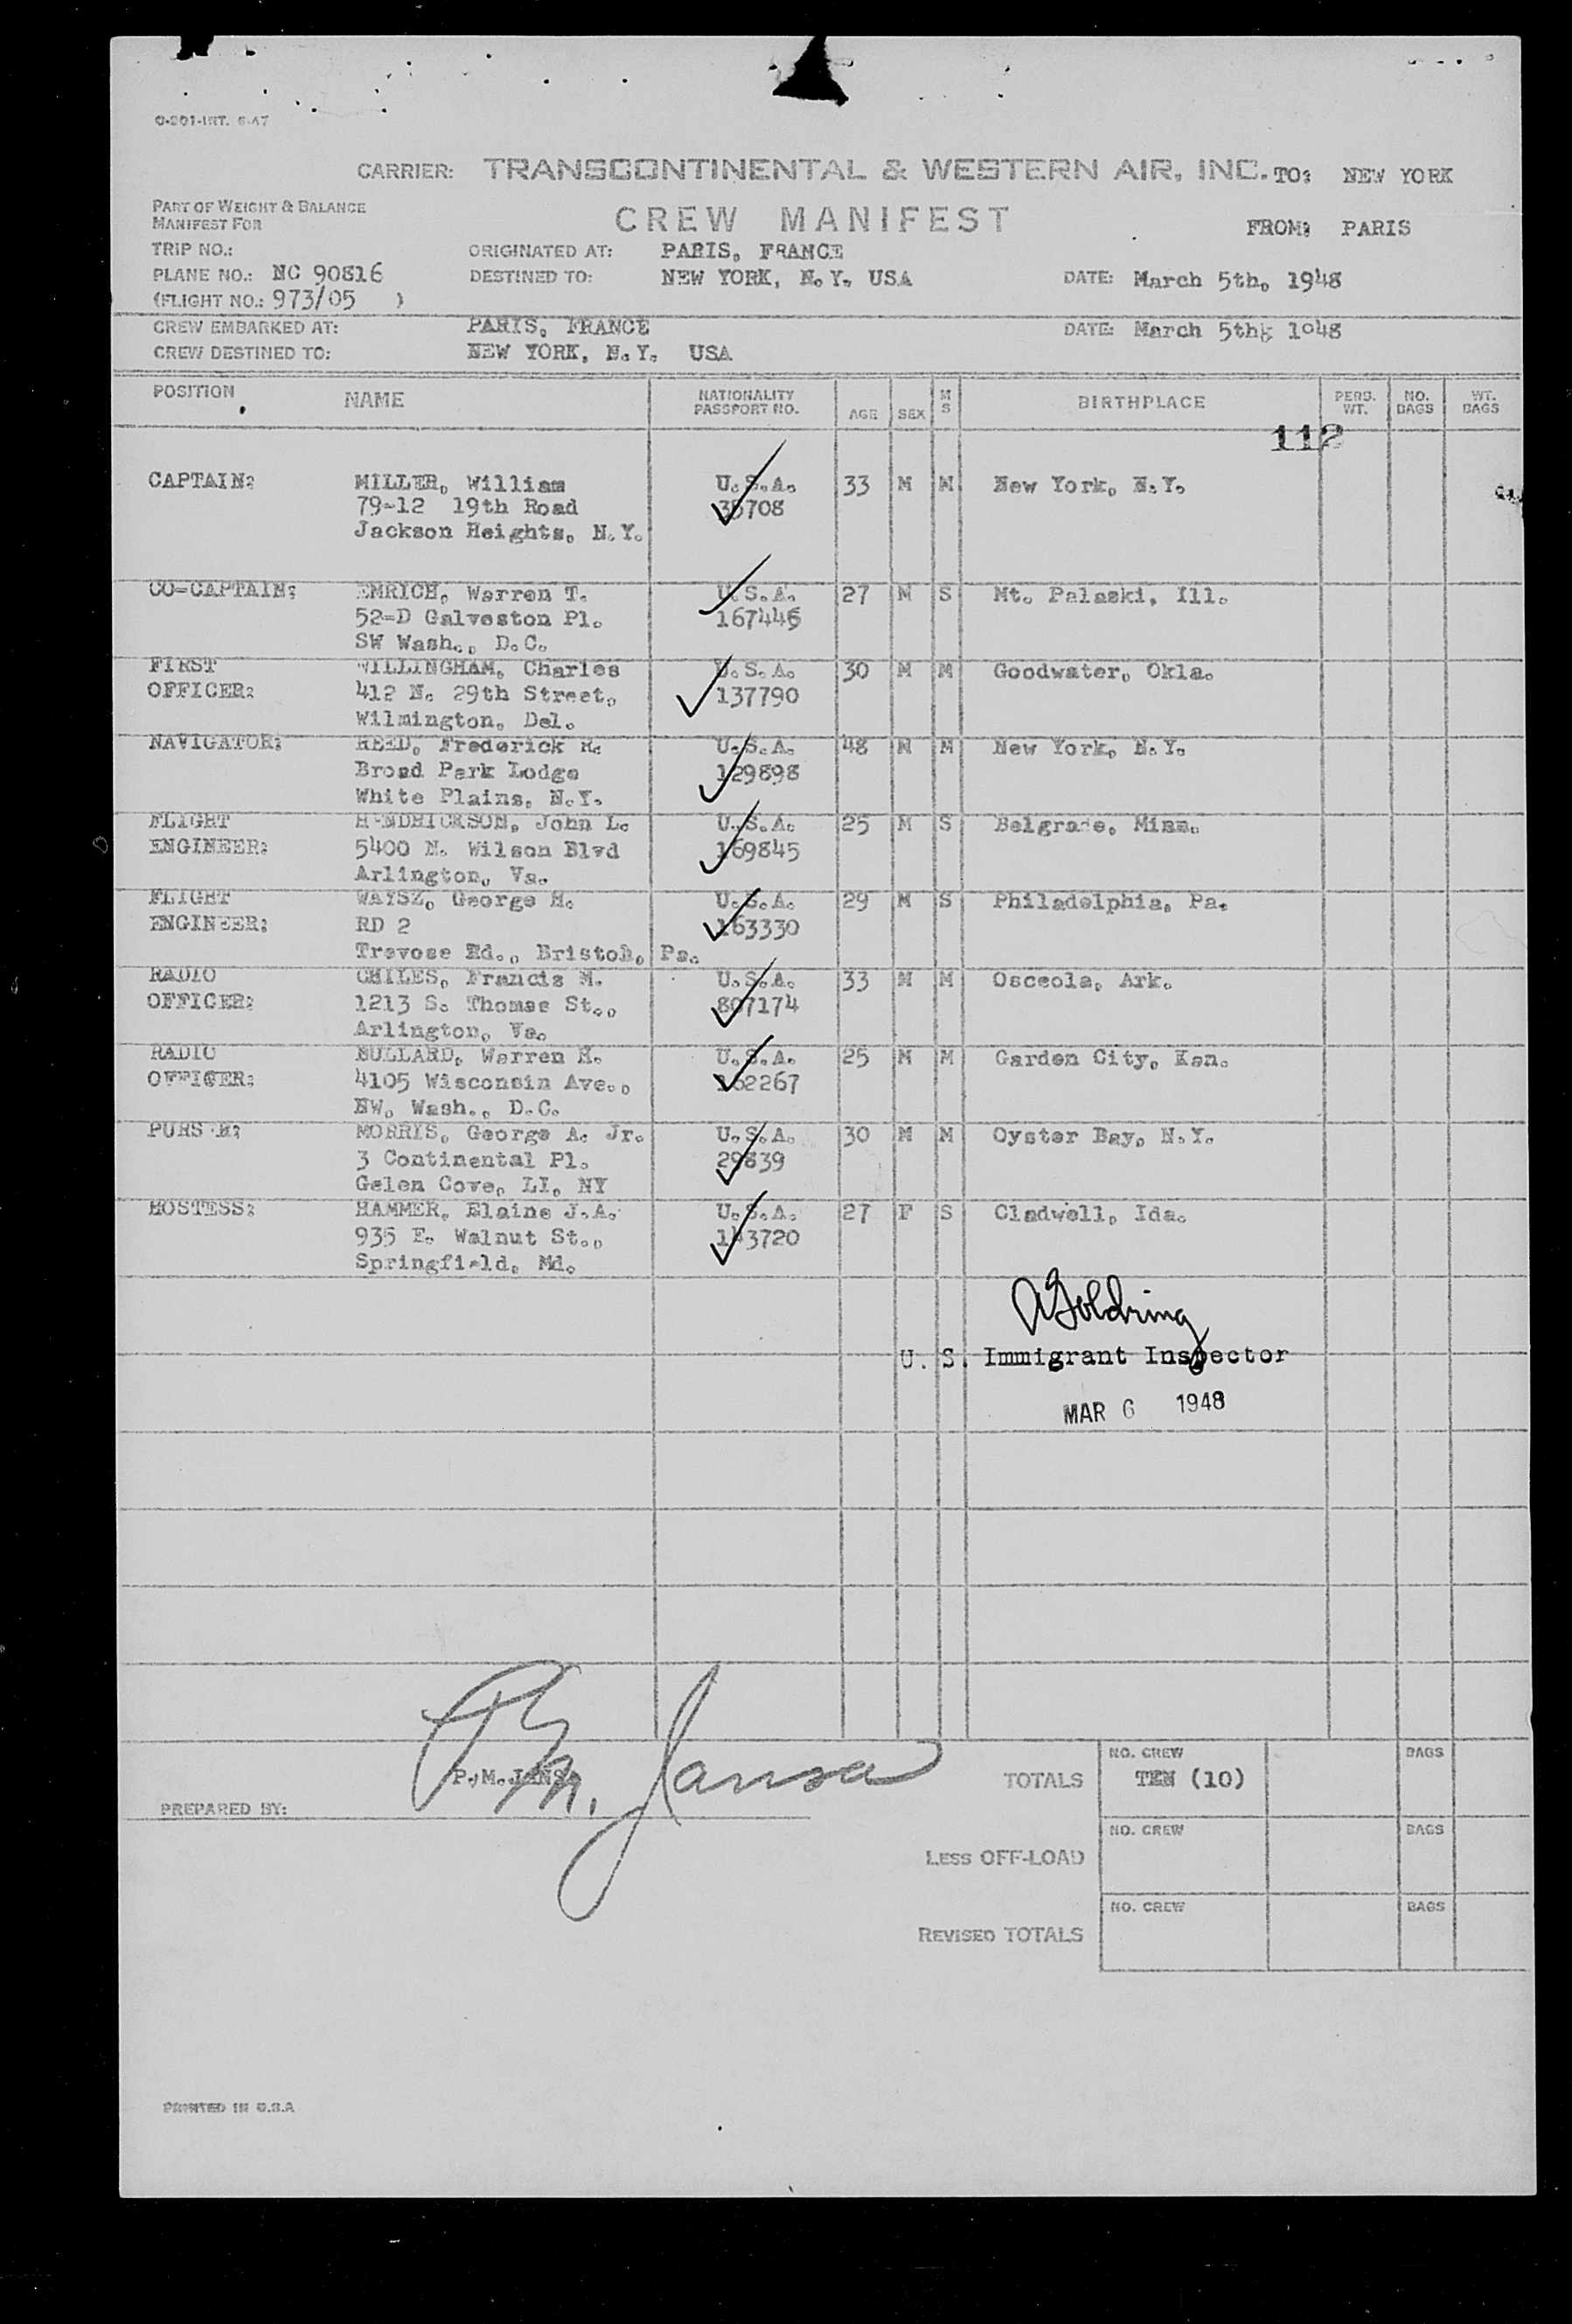 O-201-INT. 6-47
CARRIER: TRANSCONTINENTAL & WESTERN AIR, INC. TO: NEW YORK
PART OF WEIGHT & BALANCE
MANIFEST FOR
CREW MANIFEST
FROM: PARIS
TRIP NO.: ORIGINATED AT: PARIS, FRANCE
PLANE NO.: NC 90816 DESTINED TO: NEW YORK, N.Y. USA DATE: March 5th, 1948
(FLIGHT NO.: 973/05 )
CREW EMBARKED AT: PARIS, FRANCE DATE: March 5th, 1o48
CREW DESTINED TO: NEW YORK, N.Y. USA
POSITION NAME NATIONALITY PASSPORT NO. AGE SEX M S BIRTHPLACE PERS. WT. NO. BAGS WT. BAGS
112
CAPTAIN: MILLER, William U.S.A. 33 M M New York, N.Y.
79-12 19th Road 708
Jackson Heights, N.Y.
CO-CAPTAIN: EMRICH, Warren T. U.S.A. 27 M S Mt. Palaski, Ill.
52-D Galveston Pl. 167446
SW Wash., D.C.
FIRST WILLINGHAM, Charles U.S.A. 30 M M Goodwater, Okla.
OFFICER: 412 N. 29th Street, 137790
Wilmington, Del.
NAVIGATOR: REED, Frederick R. U.S.A. 48 M M New York, N.Y.
Broad Park Lodge 129898
White Plains, N.Y.
FLIGHT HENDRICKSON, John L. U.S.A. 25 M S Belgrade, Minn.
ENGINEER: 5400 N. Wilson Blvd 169845
Arlington, Va.
FLIGHT WAYSZ, George H. U.S.A. 29 M S Philadelphia, Pa.
ENGINEER: RD 2 163330
Trevose Rd., Bristol, Pa.
RADIO CHILES, Francis M. U.S.A. 33 M M Osceola, Ark.
OFFICER: 1213 S. Thomas St., 807174
Arlington, Va.
RADIO BULLARD, Warren H. U.S.A. 25 M M Garden City, Kan.
OFFICER: 4105 Wisconsin Ave., 162267
NW, Wash., D.C.
PURSER: MORRIS, George A. Jr. U.S.A. 30 M M Oyster Bay, N.Y.
3 Continental Pl. 29839
Gelen Cove, LI, NY
HOSTESS: HAMMER, Elaine J.A. U.S.A. 27 F S Cladwell, Ida.
935 E. Walnut St., 143720
Springfield, Md.
A Goldring
U. S. Immigrant Inspector
MAR 6 1948
P. M. Jansa
P.M.JANSA
PREPARED BY:
TOTALS NO. CREW TEN (10) BAGS
LESS OFF-LOAD NO. CREW BAGS
REVISED TOTALS NO. CREW BAGS
PRINTED IN U.S.A